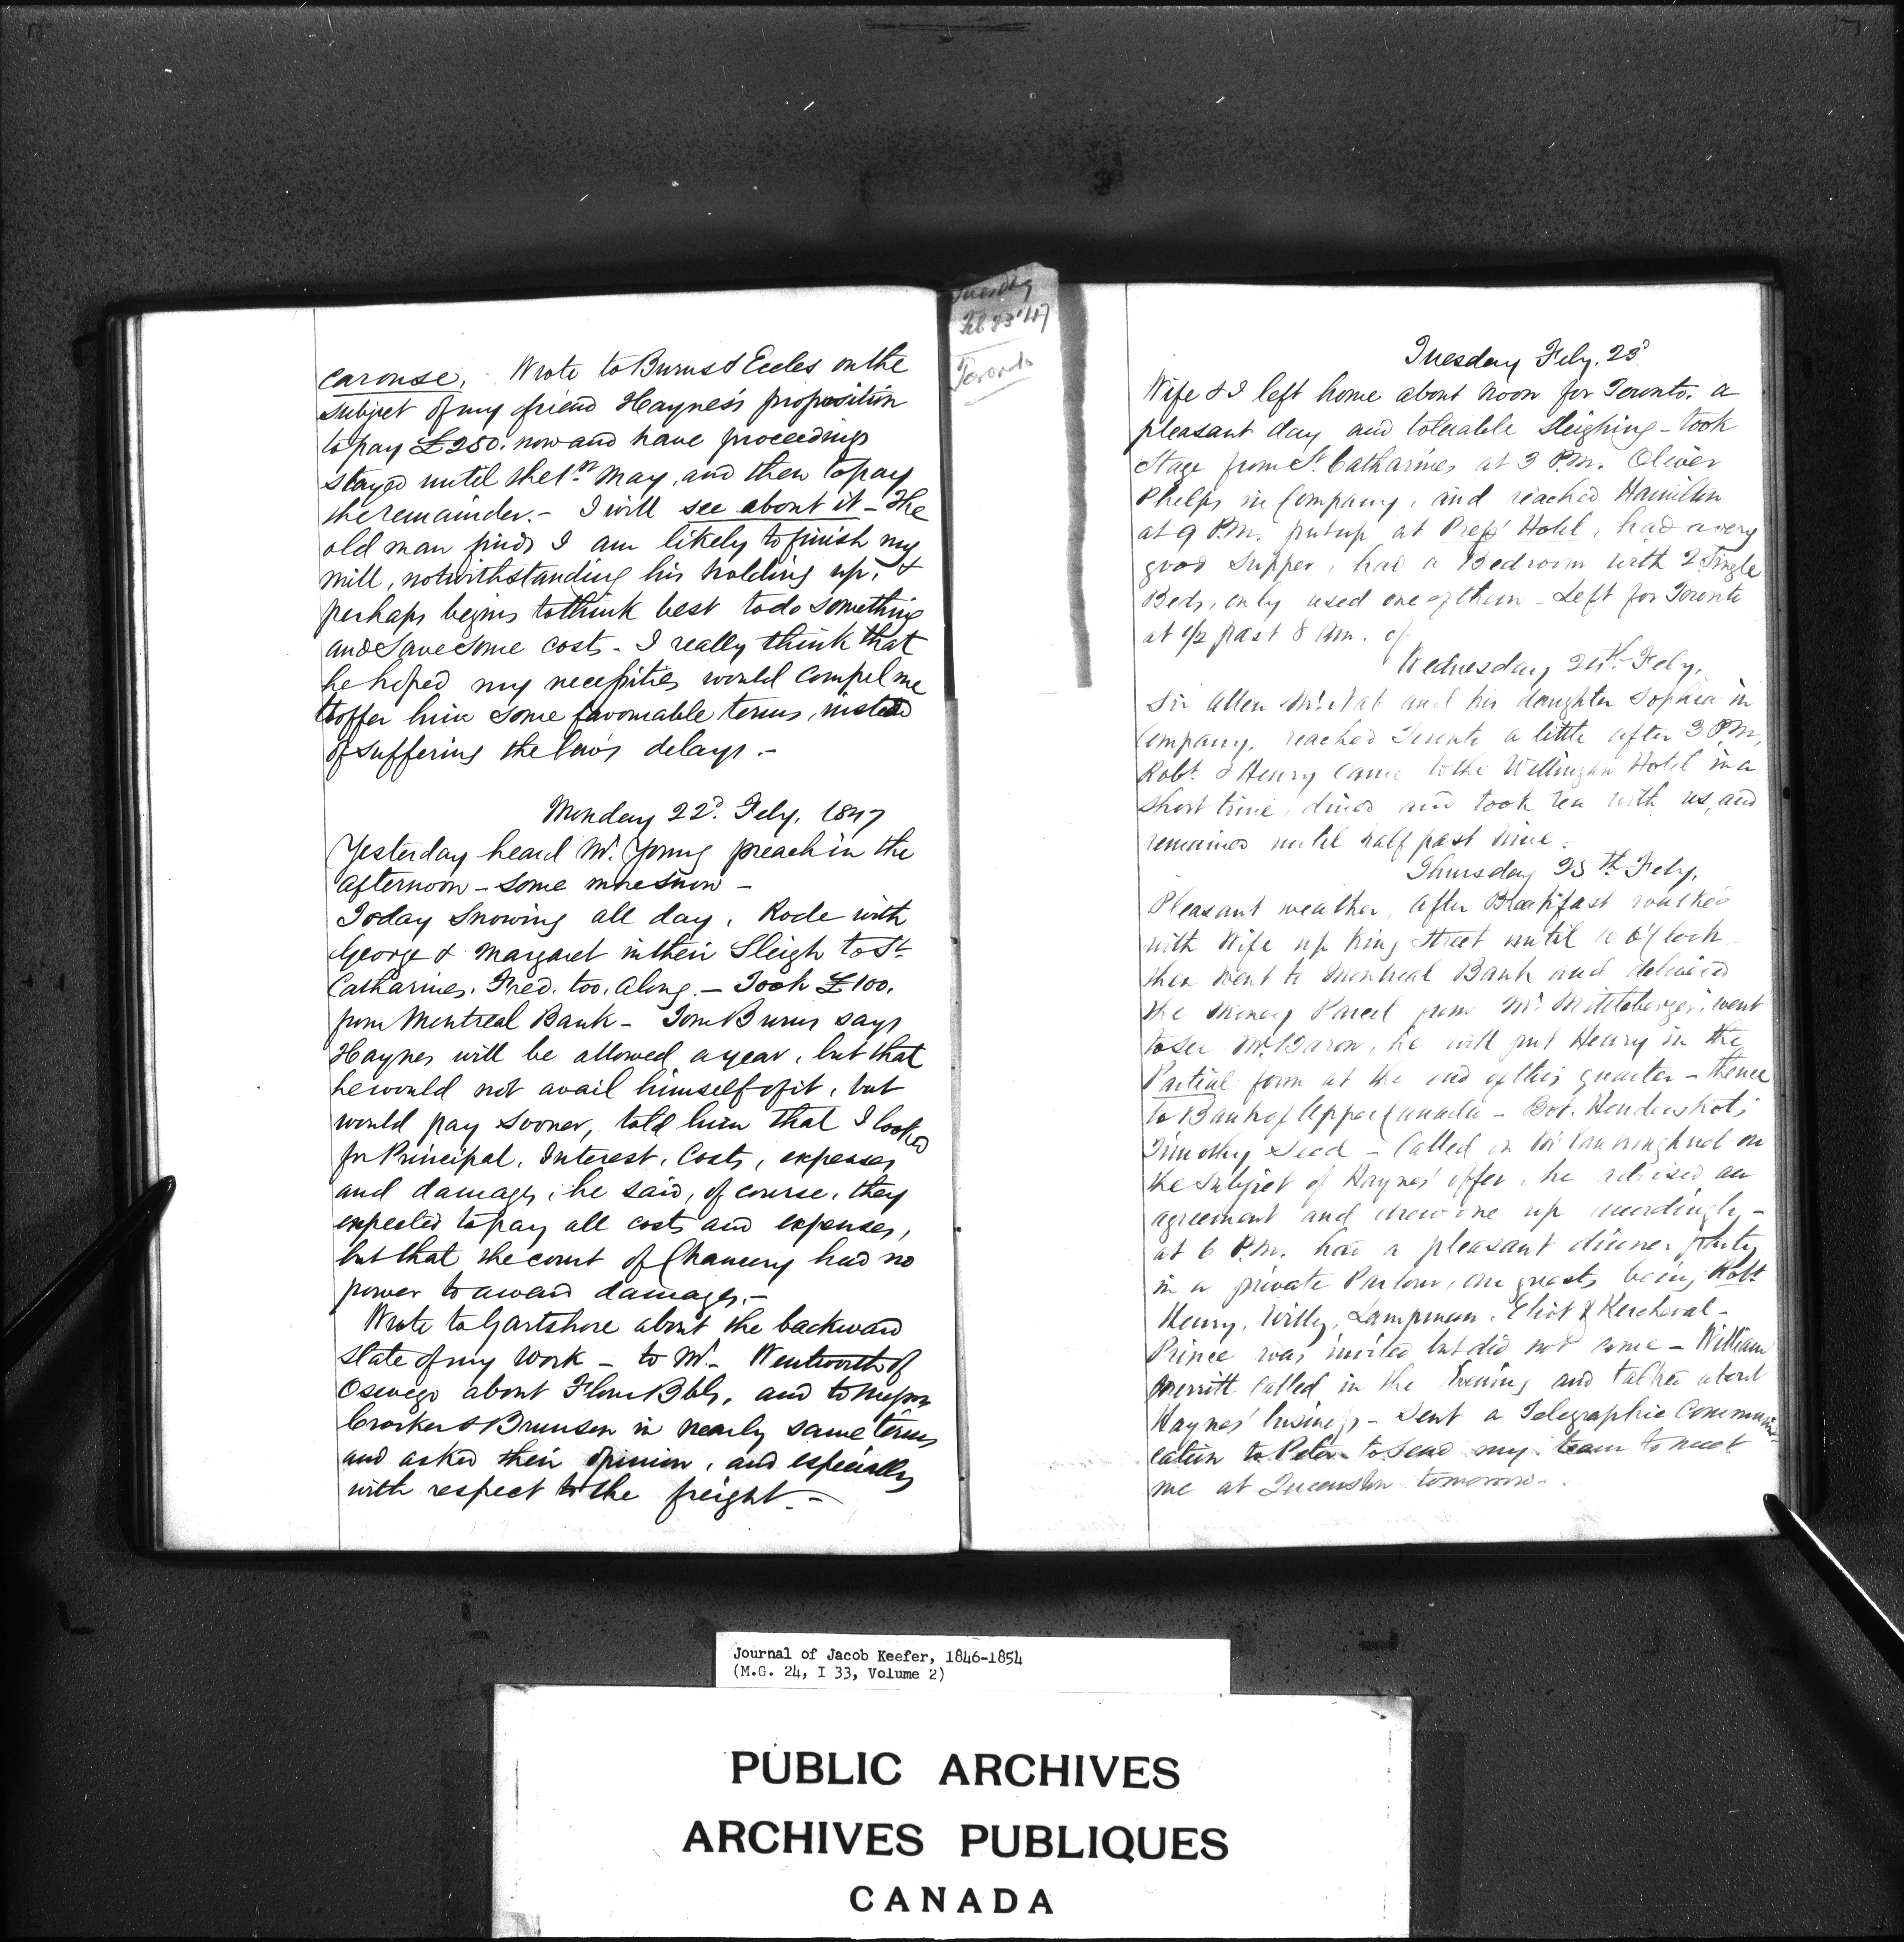 carouse. Wrote to Burns & Eccles on the
subject of my friend Haynes's proposition
to pay £250. now and have proceedings
stayed until the 1st May, and then to pay
the remainder. - I will see about it - The
old man finds I am likely to finish my
mill, notwithstanding his holding up, &
perhaps begins to think best to do something
and save some costs - I really think that
he hoped my necessities would compel me
to offer him some favourable terms, instead
of suffering the law's delays. -
Monday 22d. Feby, 1847
Yesterday heard Mr. Young preach in the
afternoon - some more snow -
Today snowing all day, Rode with
George & Margaret in their Sleigh to St
Catharines. Fred. too. along. - Took £100.
from Montreal Bank - Tom Burns says
Haynes will be allowed a year, but that
he would not avail himself of it, but
would pay sooner, told him that I looked
for Principal, Interest, Costs, expenses
and damages, he said, of course, they
expected to pay all costs and expenses,
but that the court of Chancery had no
power to award damages. -
Wrote to Gartshore about the backward
state of my work - to Mr. Wentworth of
Oswego about Flour Bbls, and to Messrs
Crocker & Brunson in nearly same terms
and asked their opinion, and especially
with respect to the freight. -
Tuesday
Feb 23 '47
Toronto
Tuesday Feby. 23d
Wife & I left home about noon for Toronto. a
pleasant day and tolerable Sleighing - took
Stage from St. Catharines at 3 P.M. Oliver
Phelps in Company, and reached Hamilton
at 9 P.M. put up at Press' Hotel, had a very
good supper, had a Bedroom with 2 Single
Beds, only used one of them - Left for Toronto
at 1/2 past 8 Am. of
Wednesday 24th Feby.
Sir Allen McNab and his daughter Sophia in
Company, reached Toronto a little after 3 P.M,
Robt. & Henry came to the Wellington Hotel in a
short time, dined and took tea with us, and
remained until half past nine -
Thursday 25th Feby.
Pleasant weather, after Breakfast walked
with Wife up King Street until 10 o'Clock
then went to Montreal Bank and delivered
the Money Parcel from Mr. Mittleberger, went
to see Mr. Baron, he will put Henry in the
Partial form at the end of this quarter - thence
to Bank of Upper Canada - Got. Hendershot's
Timothy Seed - Called on on
the subject of Haynes' offer, he advised an
agreement and drew one up accordingly -
at 6 P.M. had a pleasant dinner party
in a private Parlour, our guests being Robt
Henry, Willy, Lampman, Eliot & Kercheval -
Prince was invited but did not come - William
Merritt called in the Evening and talked about
Haynes' business - Sent a Telegraphic Communi-
cation to Peter to send my team to meet
me at Queenston tomorrow -
Journal of Jacob Keefer, 1846-1854
(M.G. 24, I 33, Volume 2)
PUBLIC ARCHIVES
ARCHIVES PUBLIQUES
CANADA